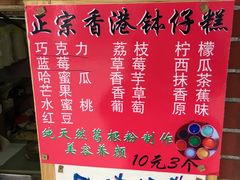 正宗香港钵仔糕
巧克力 荔枝 柠檬
蓝莓 草莓 西瓜
哈蜜瓜 香芋 抹茶
芒果 香草 香蕉
水蜜桃 葡萄 原味
红豆
纯天然葛根粉制作
美容养颜
10元3个